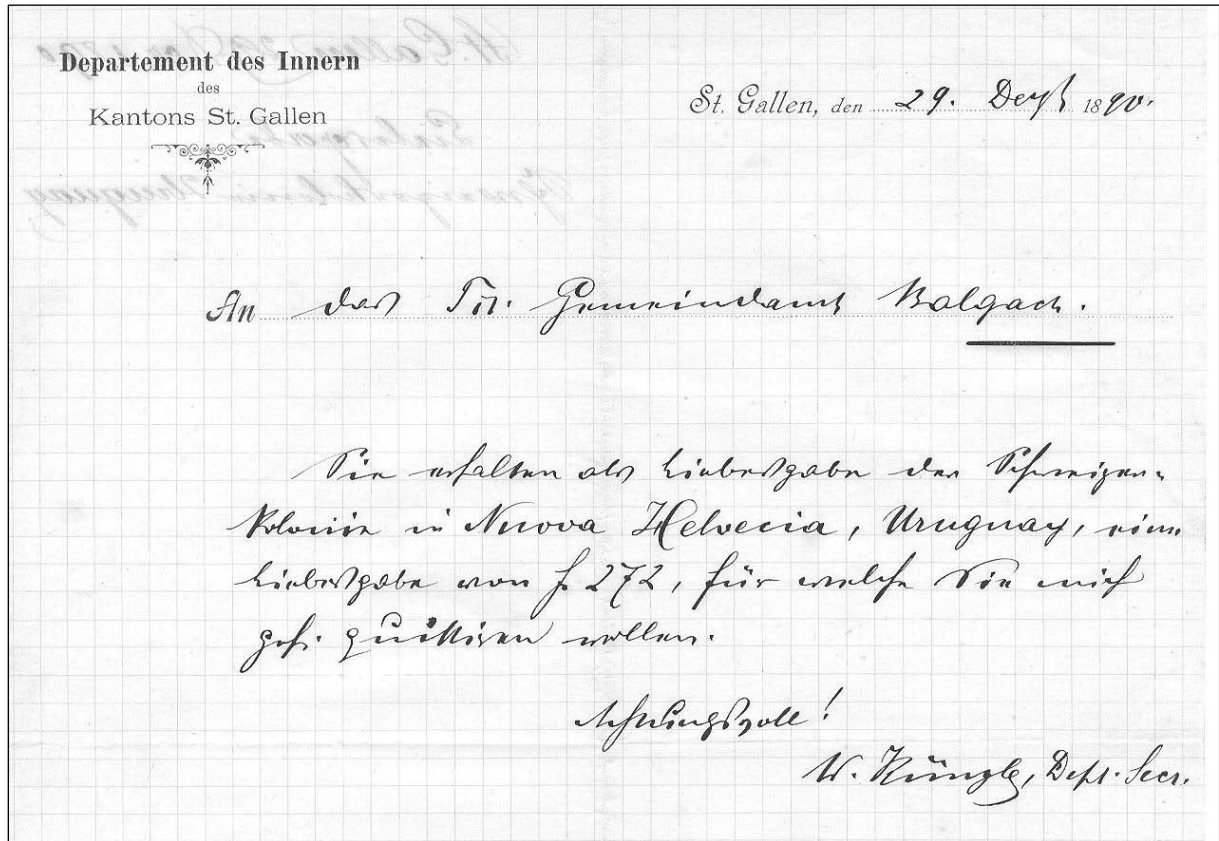 Departement des Innern
des
Kantons St. Gallen
St. Gallen, den 29. Dez. 1890.
An das Tit. Gemeindamt Balgach.
Sie erhalten als Liebesgabe der Schweizer-
kolonie in Nuova Helvecia, Uruguay, eine
Liebesgabe von f. 272, für welche Sie mich
gefl. quittiren wollen.
Achtungsvoll!
Dept. Secr.